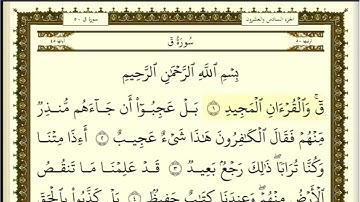 الجزء السادس والعشرون
سورة ق
سُورَةُ قٓ
بِسْمِ ٱللَّهِ ٱلرَّحْمَٰنِ ٱلرَّحِيمِ
قٓ ۚ وَٱلْقُرْءَانِ ٱلْمَجِيدِ ١ بَلْ عَجِبُوٓا۟ أَن جَآءَهُم مُّنذِرٌ
مِّنْهُمْ فَقَالَ ٱلْكَٰفِرُونَ هَٰذَا شَىْءٌ عَجِيبٌ ٢ أَءِذَا مِتْنَا
وَكُنَّا تُرَابًا ۖ ذَٰلِكَ رَجْعٌۢ بَعِيدٌ ٣ قَدْ عَلِمْنَا مَا تَنقُصُ
ٱلْأَرْضُ مِنْهُمْ ۖ وَعِندَنَا كِتَٰبٌ حَفِيظٌۢ ٤ بَلْ كَذَّبُوا۟ بِٱلْحَقِّ